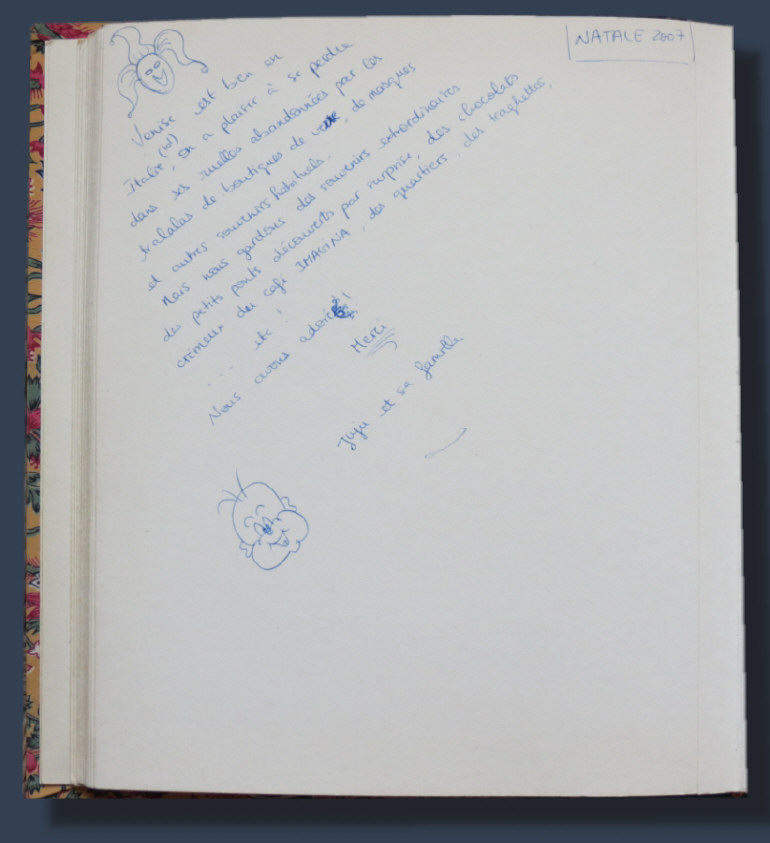 NATALE 2007
Venise est bien en
Italie, on a plaisir à se perdre
dans ses ruelles abandonnées par les
tralalas de boutiques de verre, de masques
et autres souvenirs habituels.
Mais nous gardons des souvenirs extordinaires
des petits ponts découverts par surprise, des chocolats
crémeux du café IMAGINA, des quartiers, des traghettos,
... etc !
Nous avons adoré !
Merci
Juju et sa famille